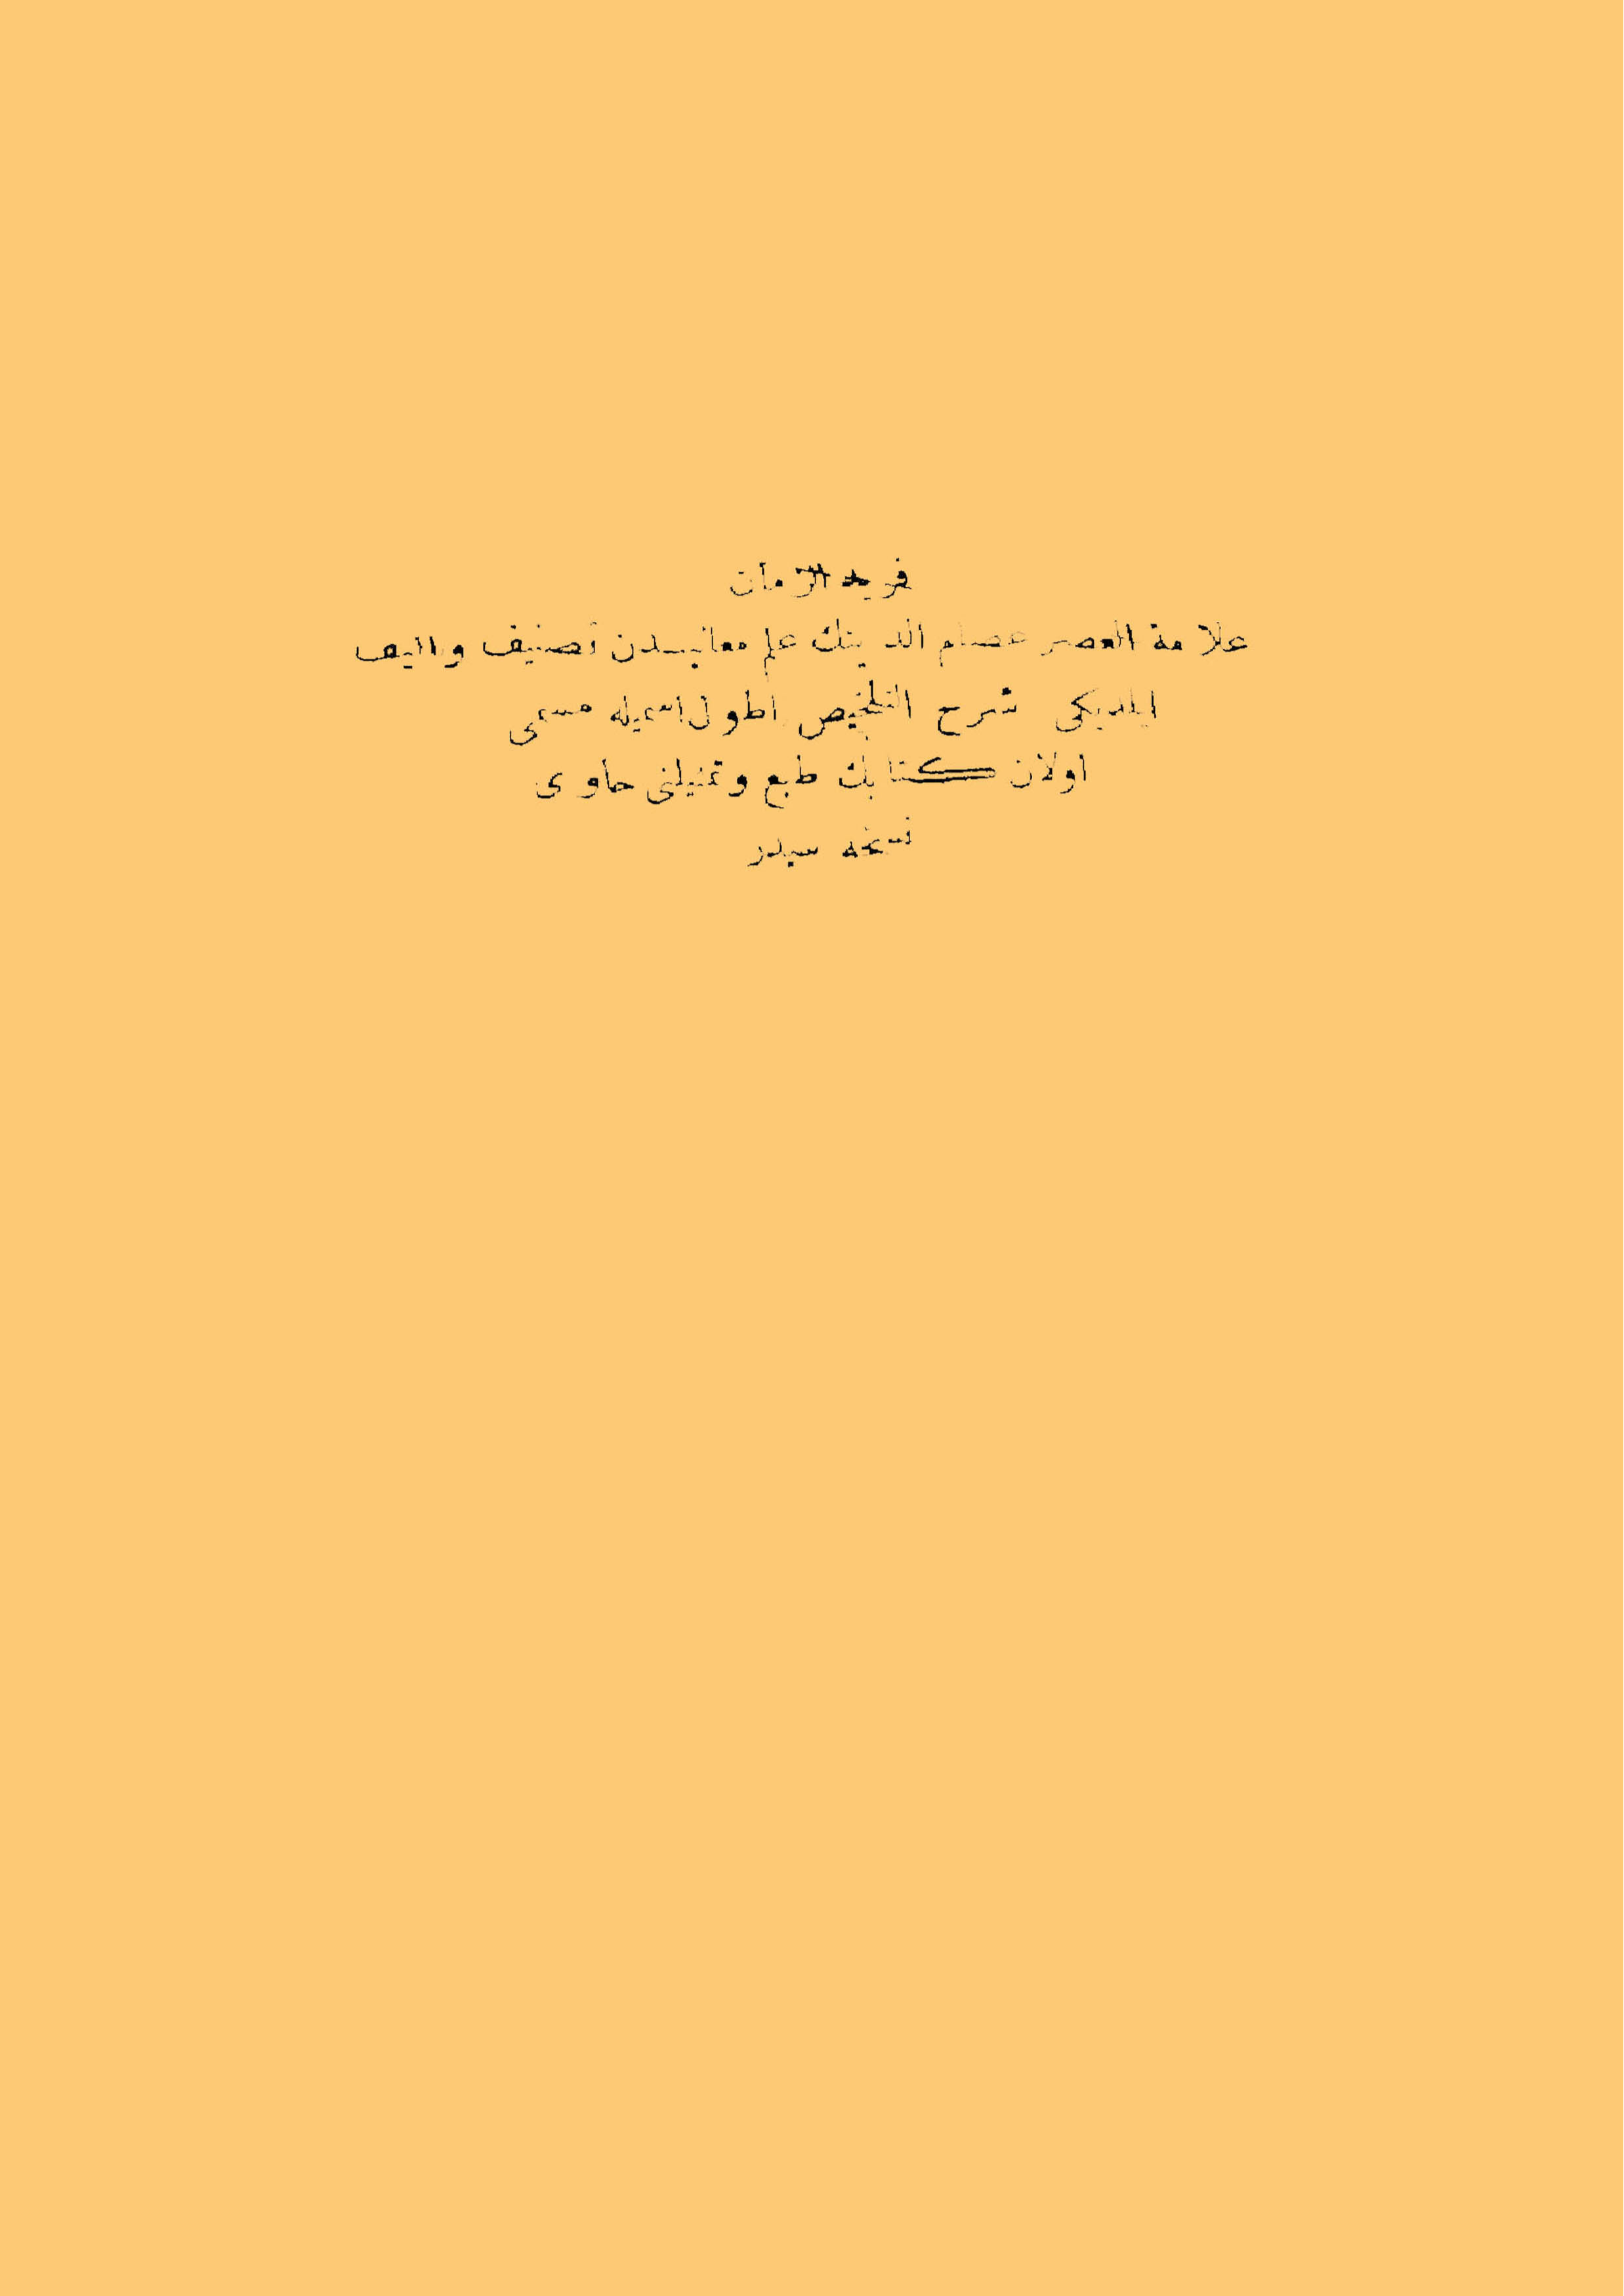 فريد الزمان
علامة العصر عصام الدينك علم معانيدن تصنيف وتاليف
ايلديكى شرح التلخيص اطول اسميله مسمى
اولان كتابك طبع وتمثيلنى حاوى
نسخه سيدر